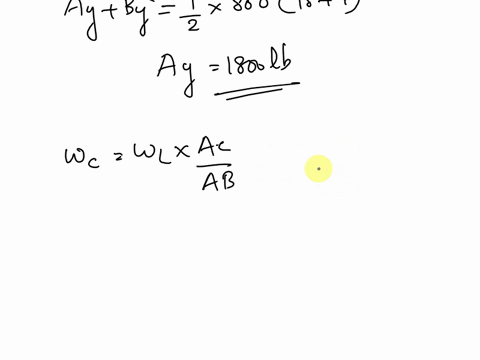 Ay + By = 1/2 × 800 (
Ay = 1800 lb
wc = wL × AC/AB